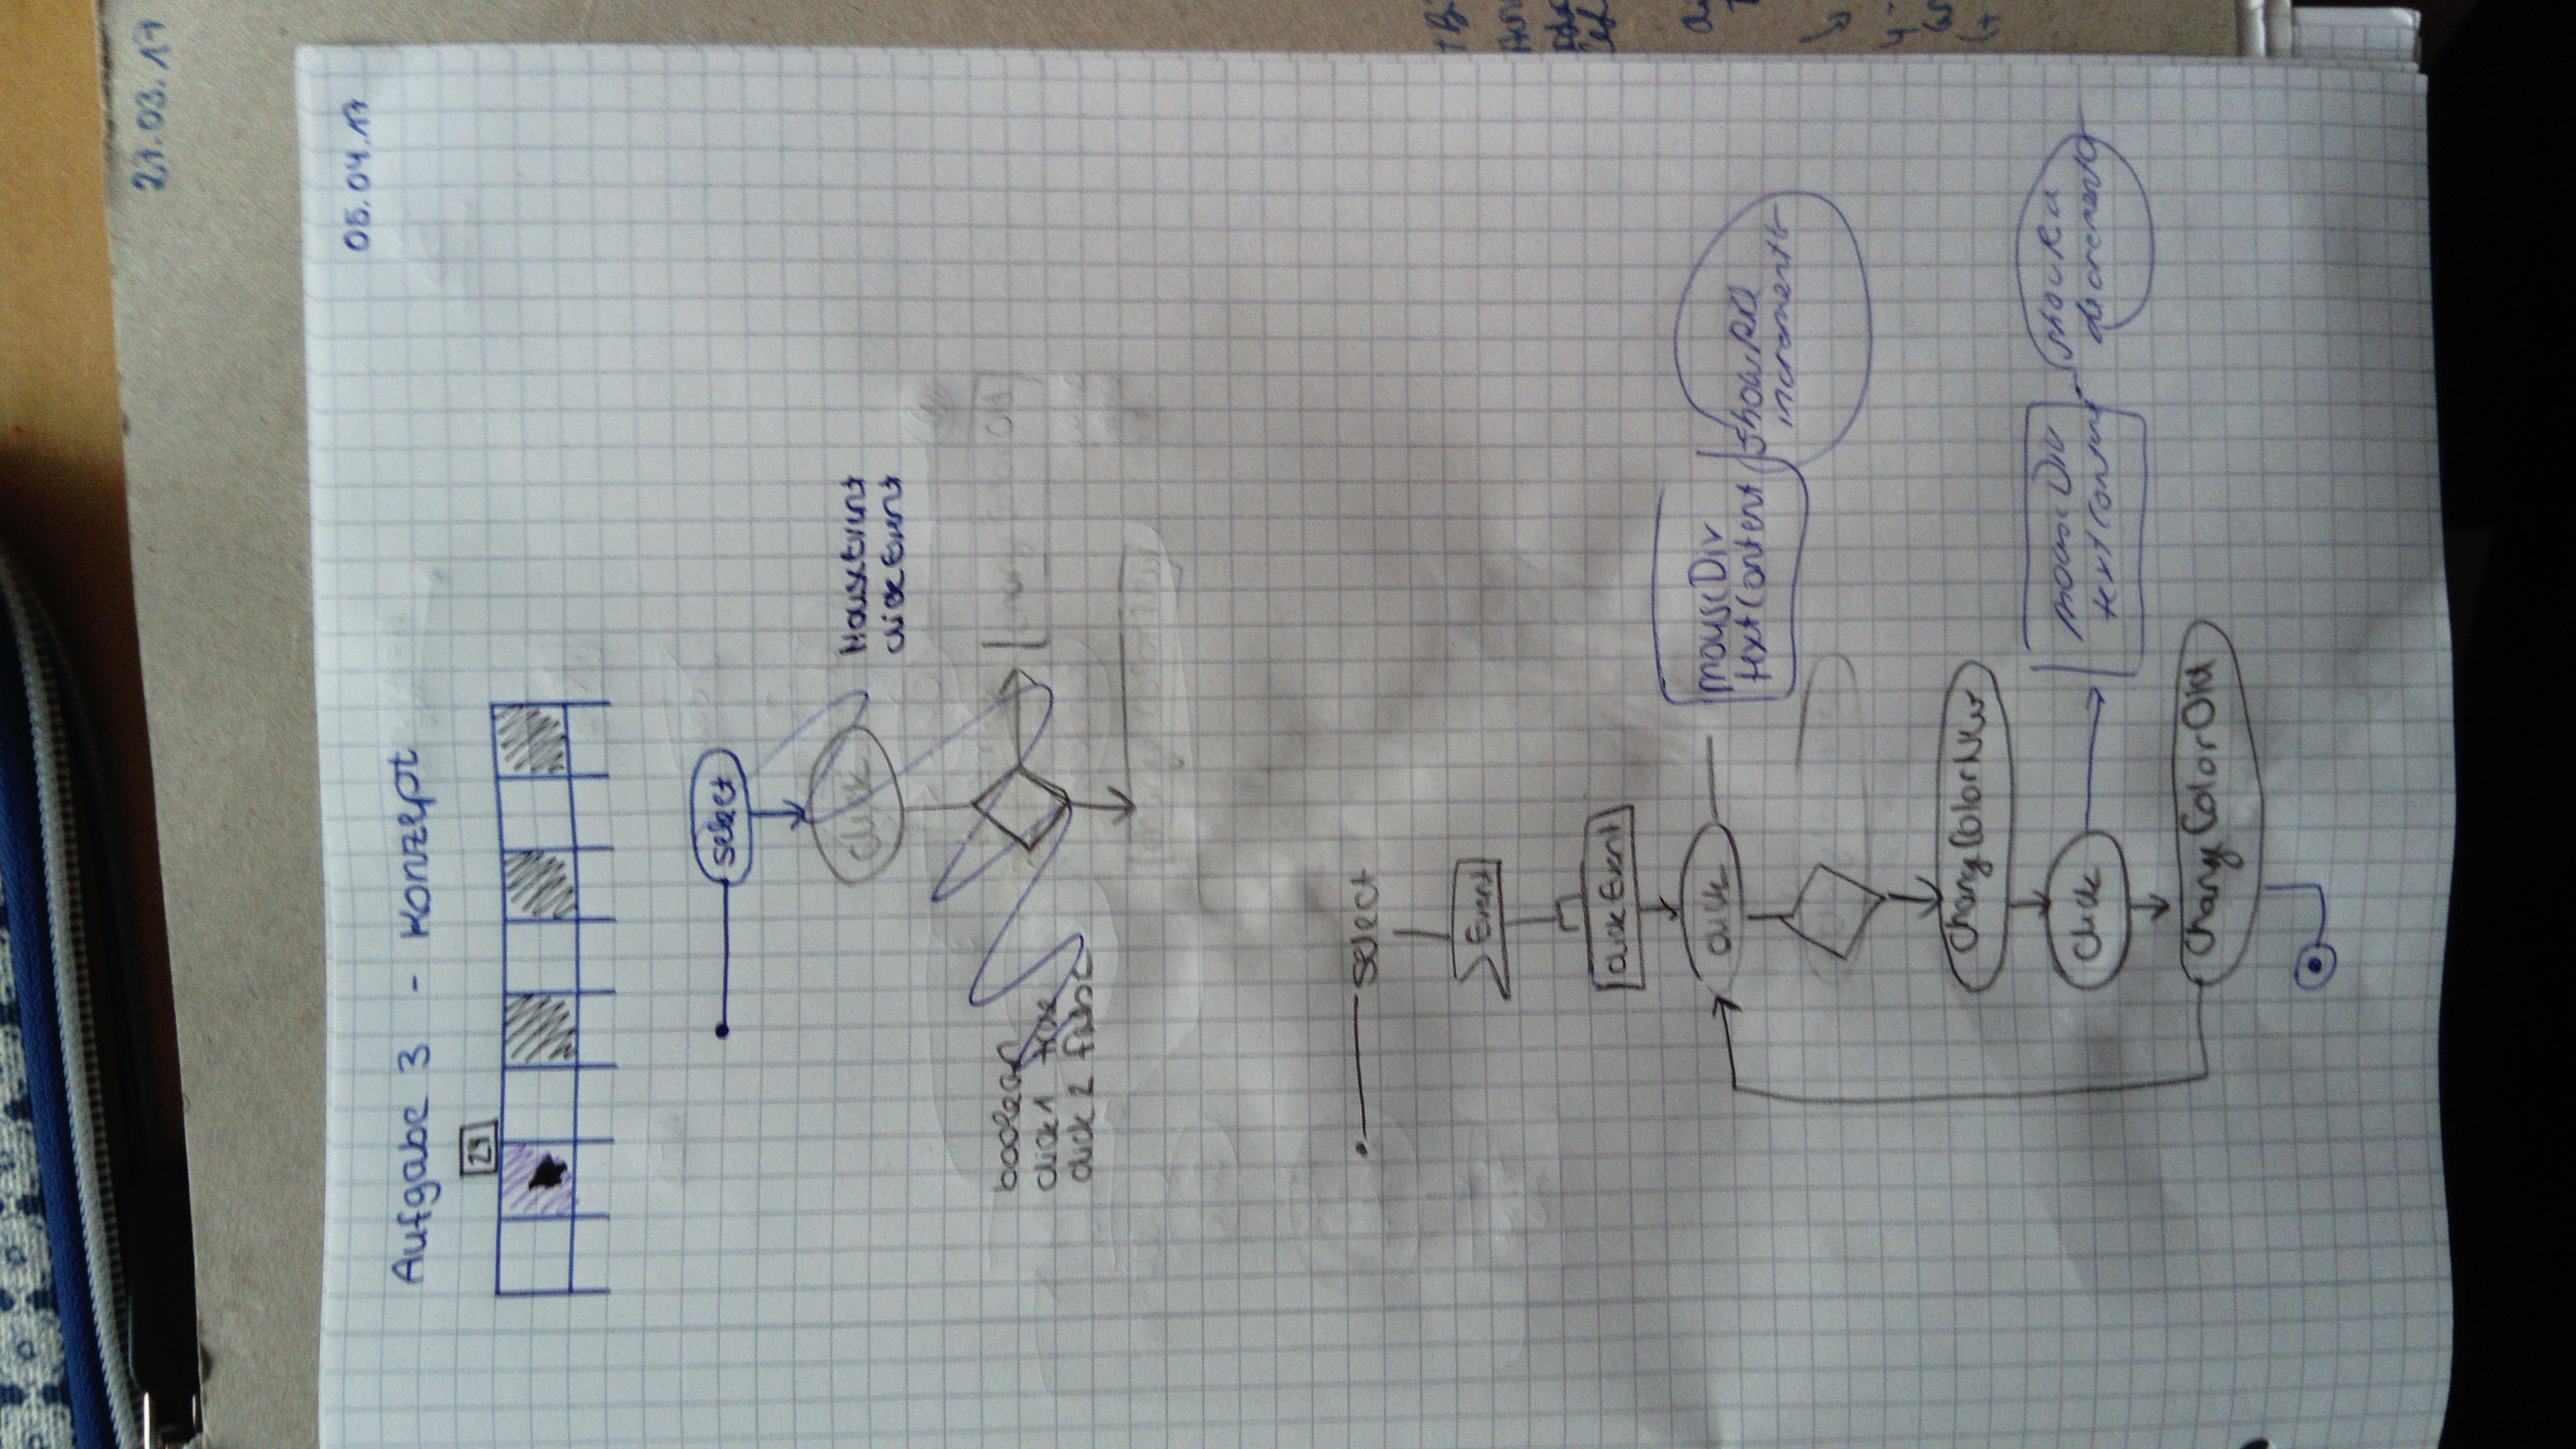 27.03.17
05.04.17
Aufgabe 3 - Konzept
24
select
click
MouseEvent
clickEvent
boolean
click 1 true
click 2 false
select
Event
clickEvent
click
mouseDiv
textContent
increment
changeColorNew
click
mouseDiv
textContent
decrement
changeColorOld